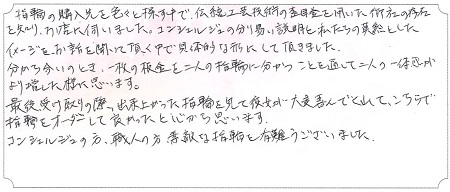 指輪の購入先を色々と探す中で、伝統工芸技術の杢目金を用いた御社の存在
を知り、お店に伺いました。コンシェルジュの分り易い説明と私たちの漠然とした
イメージをお話を聞いて頂く中で具体的な形にして頂きました。
分かち合いのとき、一枚の板金を二人の指輪に分かつことを通して二人の一体感が
より増した様に思います。
最後受け取りの際、出来上がった指輪を見て彼女が大変喜んでくれて、こちらで
指輪をオーダーして良かったと心から思います。
コンシェルジュの方、職人の方、素敵な指輪を有難うございました。